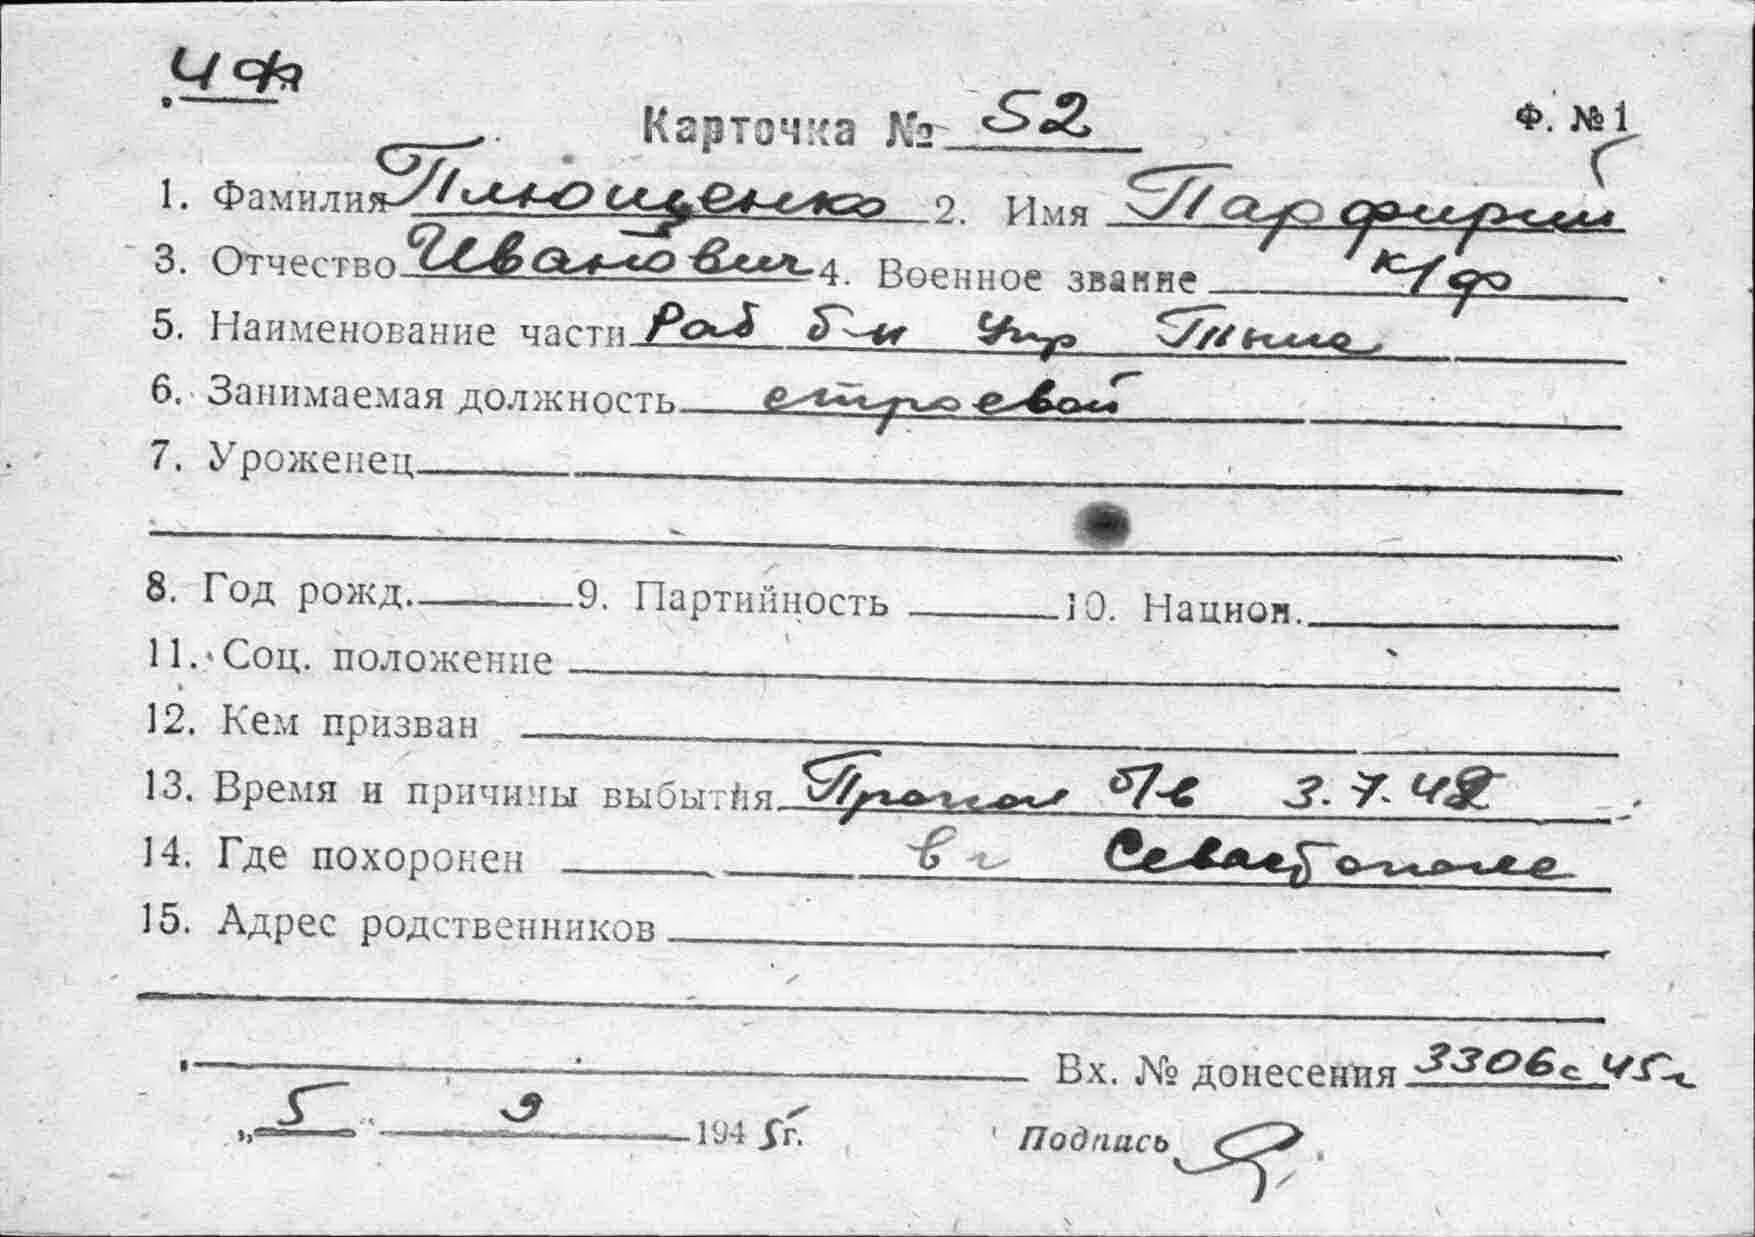 ЧФ
Карточка № 52 Ф. № 1
1. Фамилия Плющенко 2. Имя Парфирий
3. Отчество Иванович 4. Военное звание к/ф
5. Наименование части Раб б-н Упр Тыла
6. Занимаемая должность строевой
7. Уроженец
8. Год рожд. 9. Партийность 10. Национ.
11. Соц. положение
12. Кем призван
13. Время и причины выбытия Пропал б/в 3.7.42
14. Где похоронен в г Севастополе
15. Адрес родственников
Вх. № донесения 3306с 45г
„5" 9 1945г. Подпись